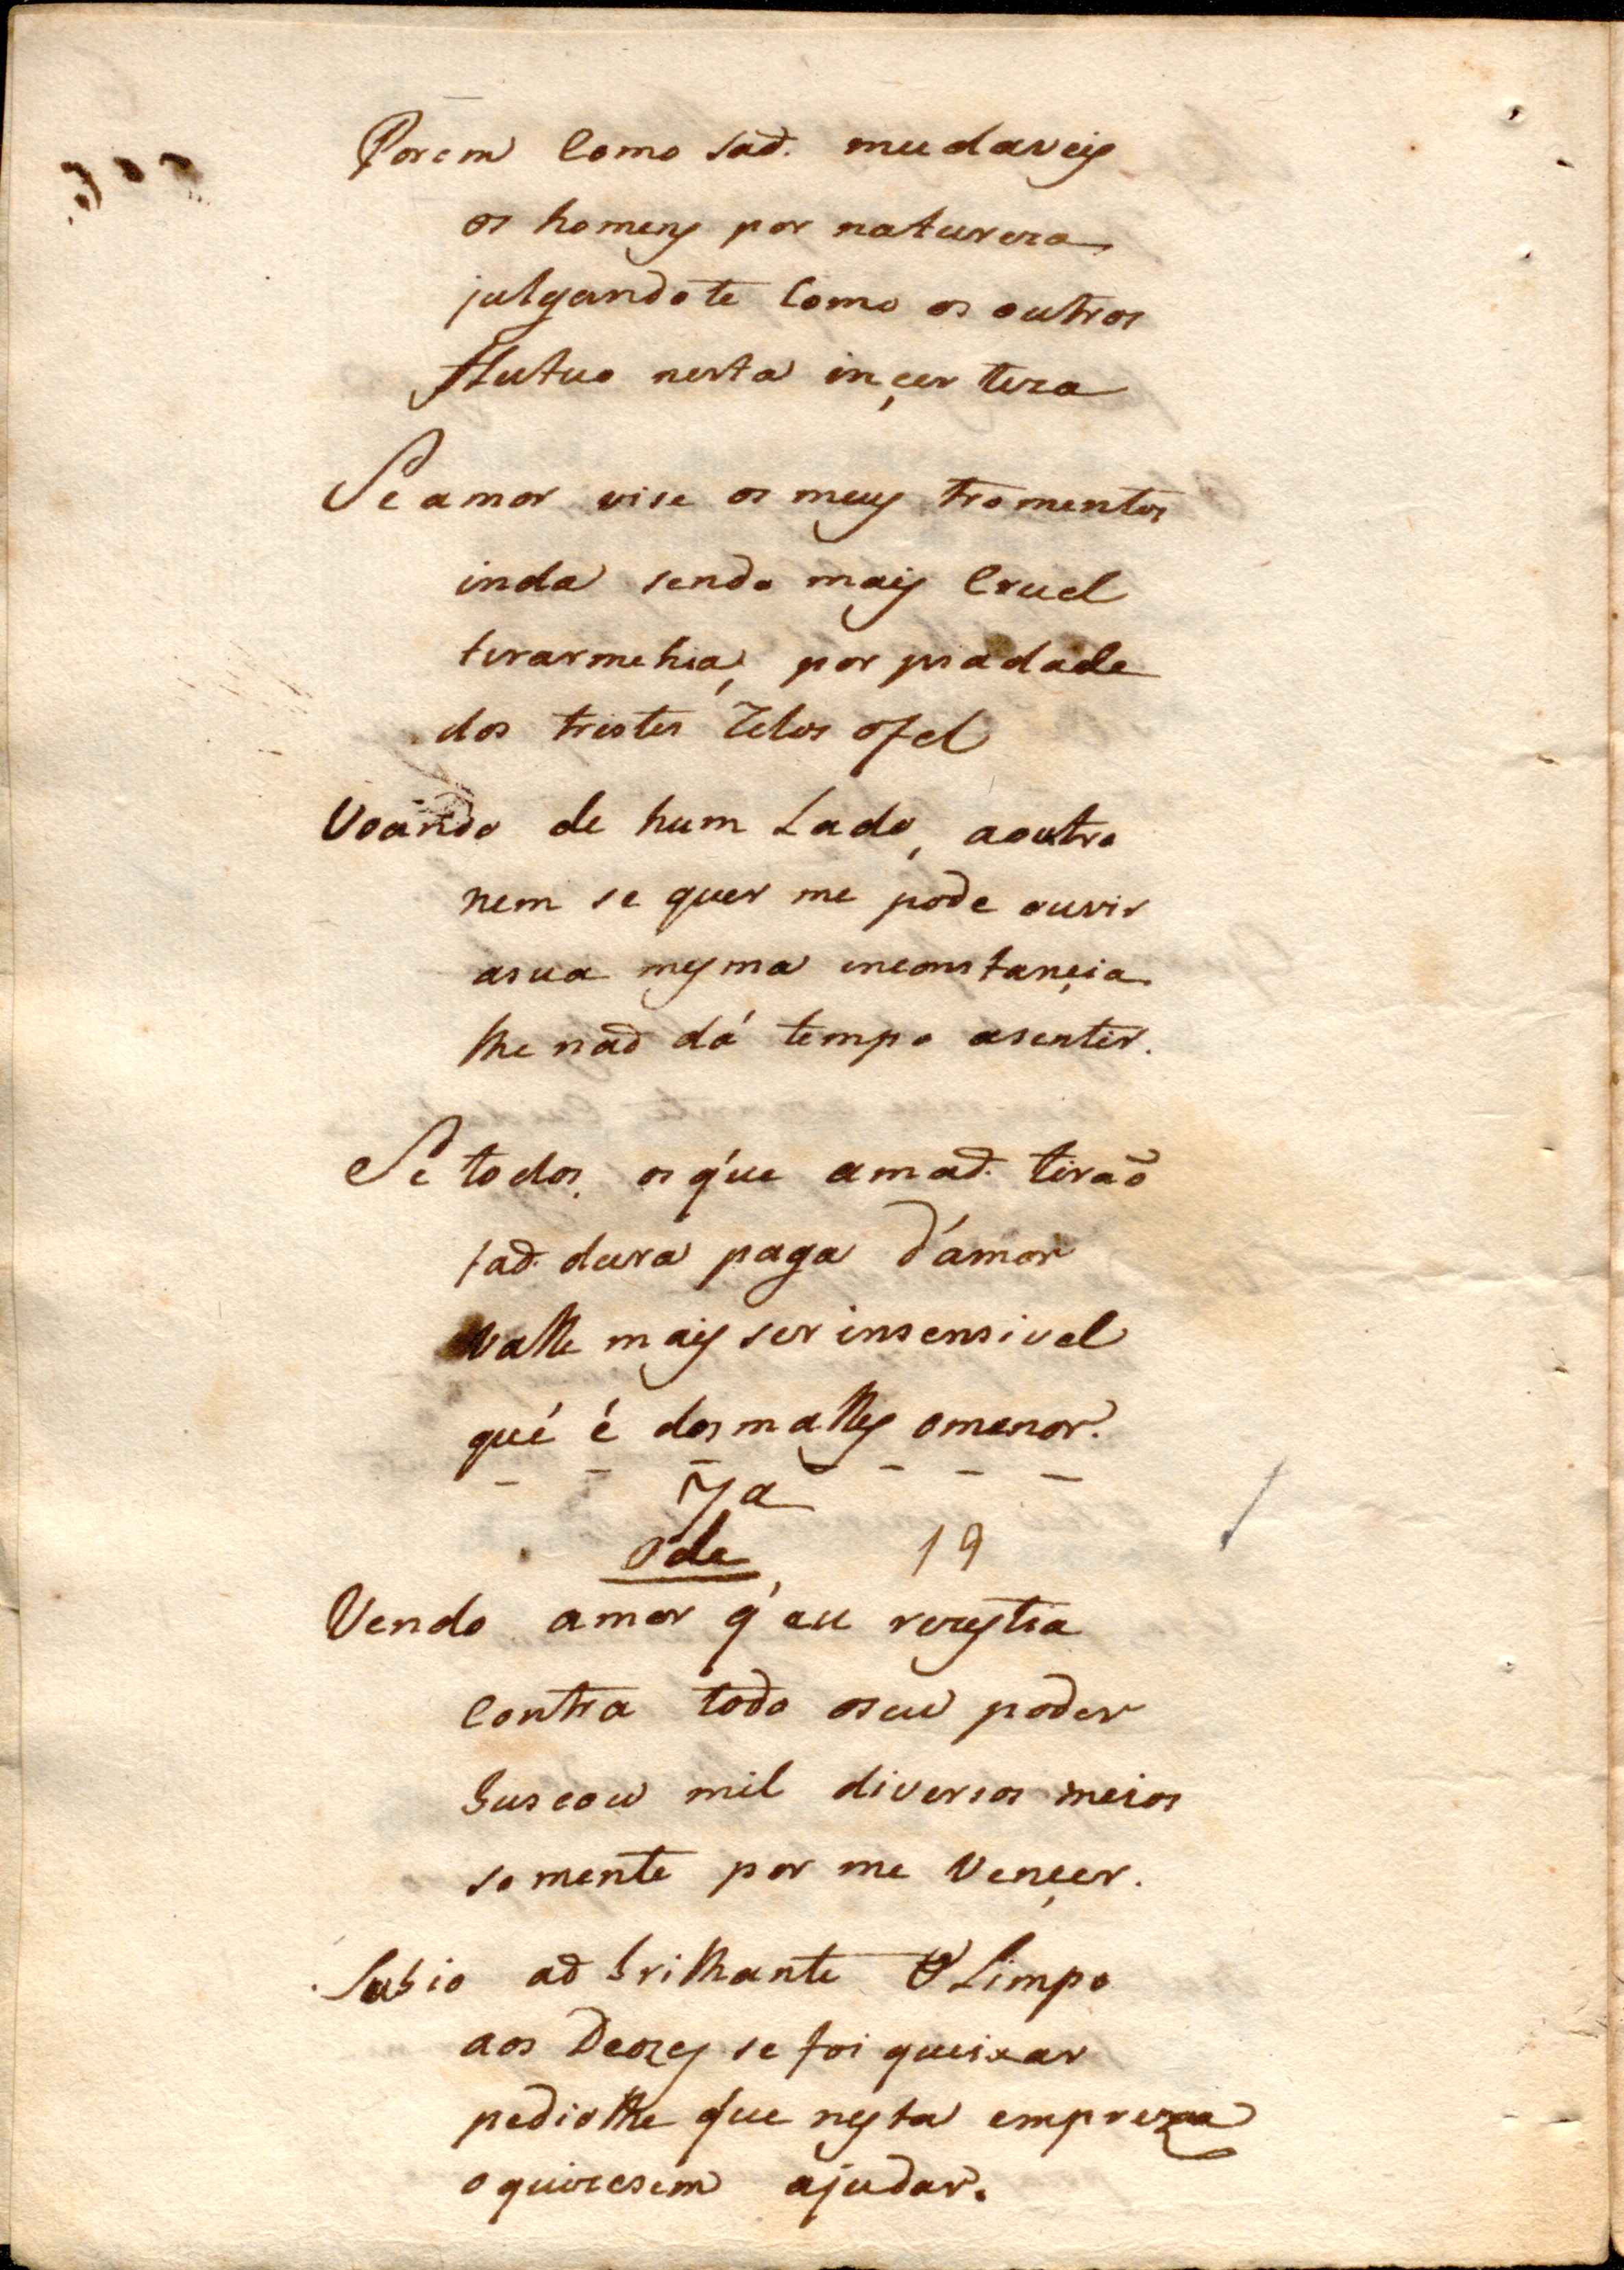 Porem como saõ. mudaveis
os homens por natureza
julgandote como os outros
flutuo nesta inçerteza
Se amor vise os meus tromentos
inda sendo mais cruel
tirarmehia, por piadade
dos tristes Zelos ofel
Voando de hum Lado, aoutro
nem se quer me pode ouvir
asua mesma inconstançia
lhe naõ dá tempo asentir.
Se todos, os q'ue amaõ. tiraõ
taõ. dura paga d'ámor
valle mais ser insensivel
qué é dos malles omenor.
7a
Ode 19
Vendo amor q' eu rezestia
contra todo oseu poder
buscou mil diversos meios
somente por me Vençer.
Subio aõ brilhante OLimpo
aos Deozes se foi queixar
pediolhe que nesta empreza
oquizesem ajudar.